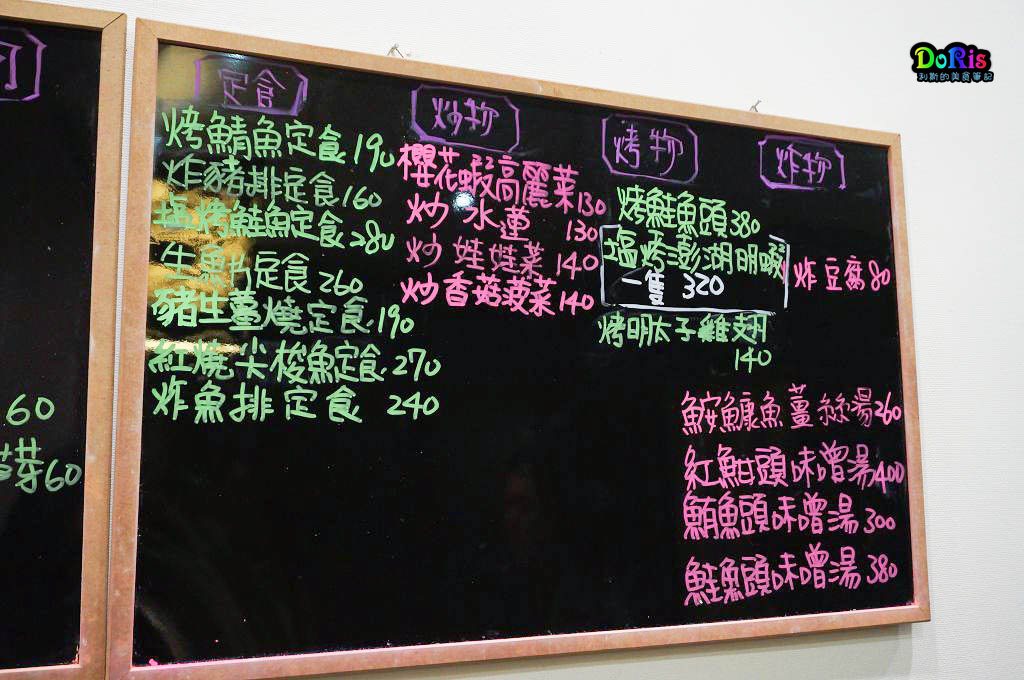 定食
烤鯖魚定食 190
炸豬排定食 160
塩烤鮭魚定食 280
生魚片定食 260
豬生薑燒定食 190
紅燒尖梭魚定食 270
炸魚排定食 240
炒物
櫻花蝦高麗菜 130
炒水蓮 130
炒娃娃菜 140
炒香菇菠菜 140
烤物
烤鮭魚頭 380
塩烤澎湖明蝦
一隻 320
烤明太子雞翅
140
炸物
炸豆腐 80
鮟鱇魚薑絲湯 260
紅魽頭味噌湯 400
鮪魚頭味噌湯 300
鮭魚頭味噌湯 380
60
芽 60
DoRis
利斯的美食筆記